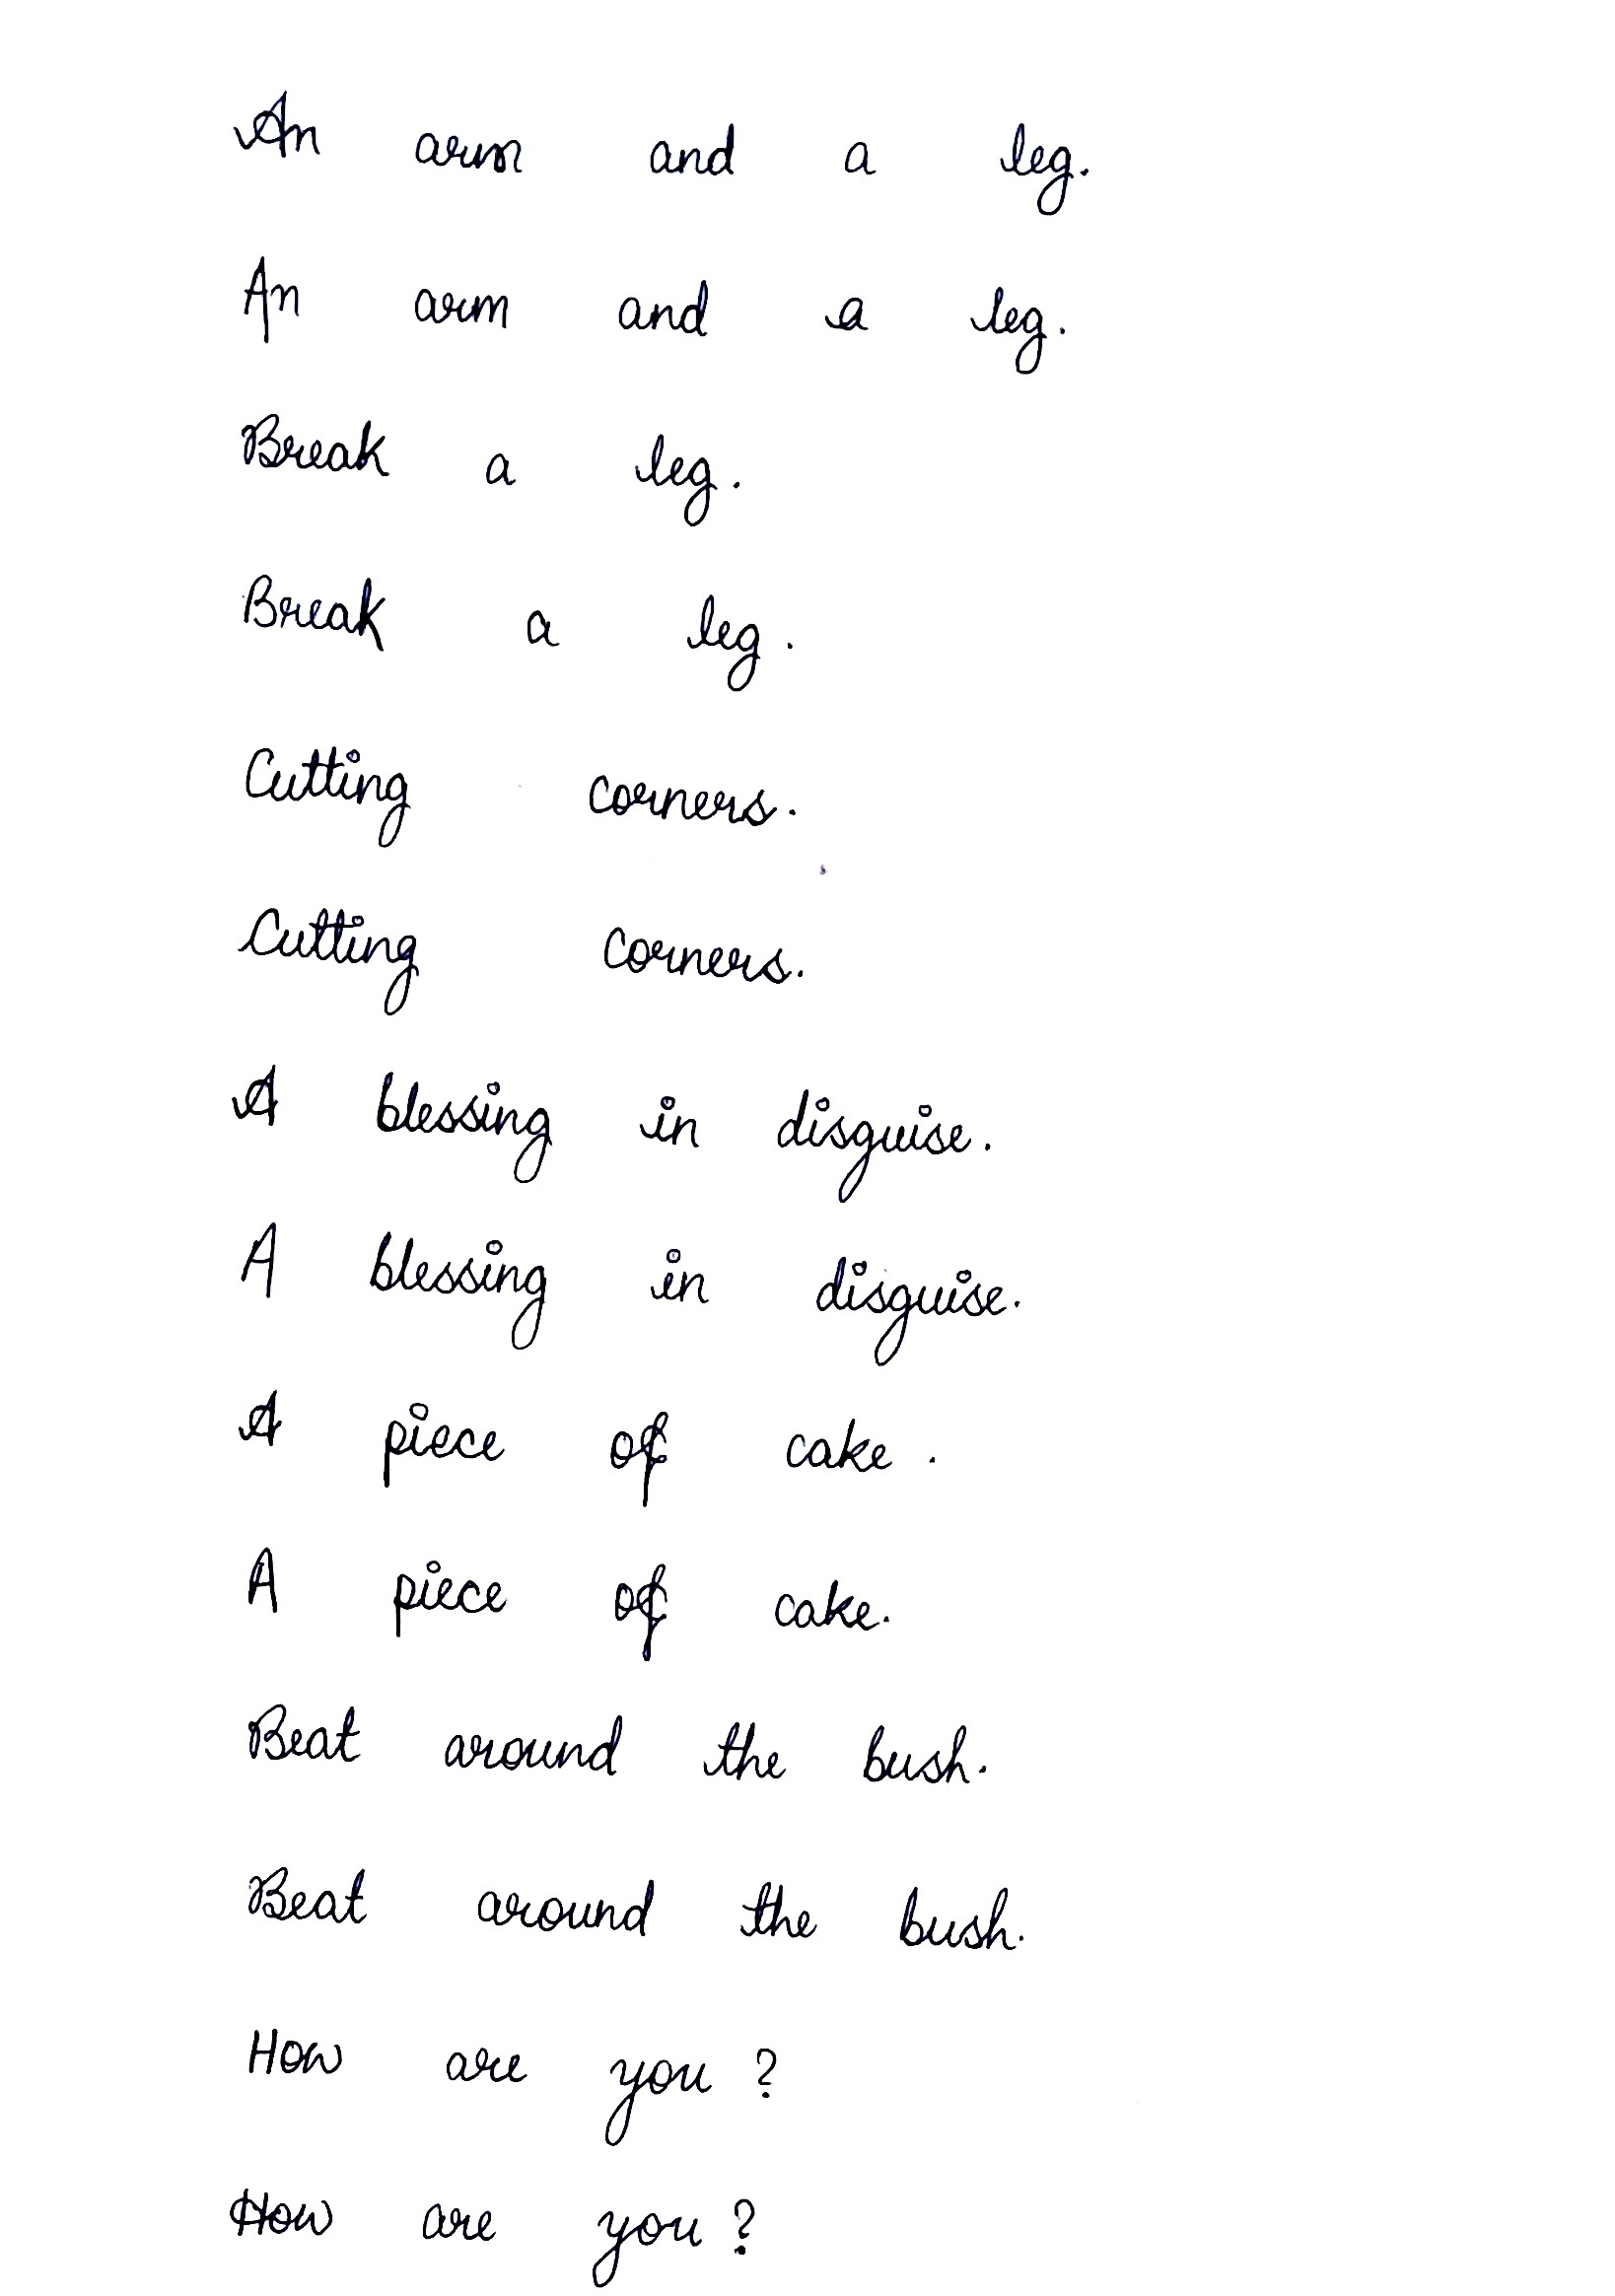 An arm and a leg.
An arm and a leg.
Break a leg.
Break a leg.
Cutting corners.
Cutting corners.
A blessing in disguise.
A blessing in disguise.
A piece of cake.
A piece of cake.
Beat around the bush.
Beat around the bush.
How are you?
How are you?